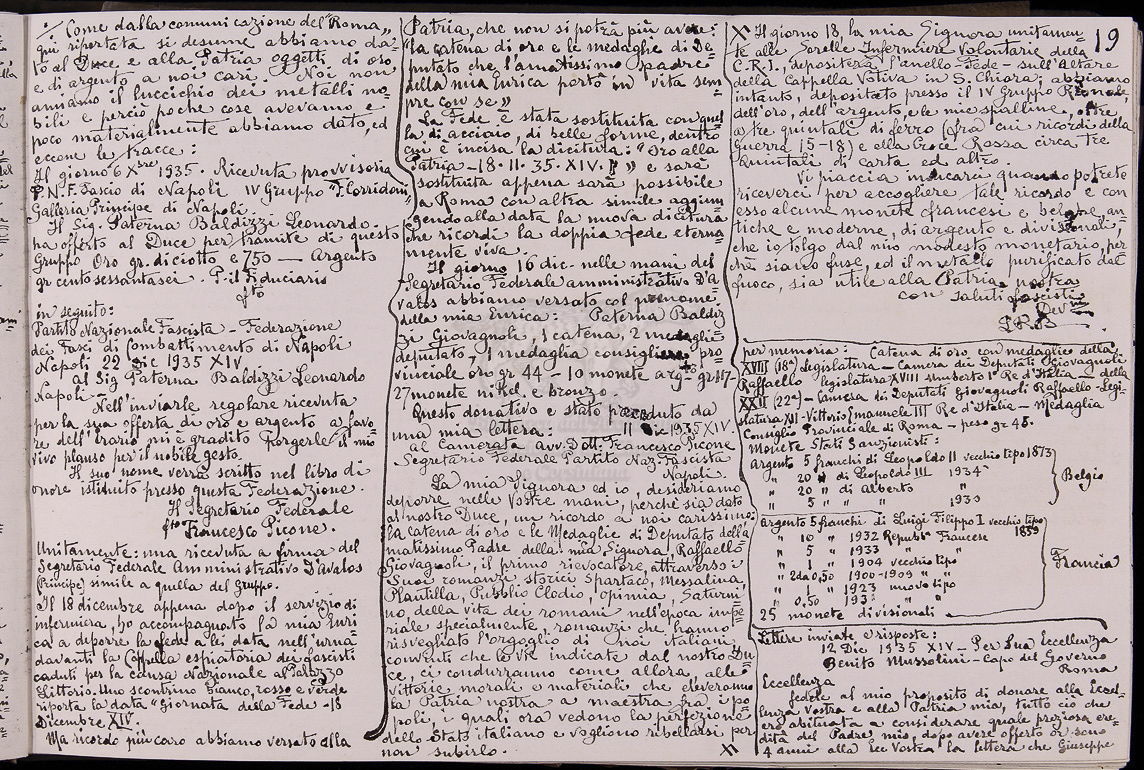 Come dalla comunicazione del "Roma„
qui riportata si desume abbiamo da=
to al Duce e alla Patria oggetti di oro
e di argento a noi cari. Noi non
amiamo il luccichio dei metalli no=
bili e perciò poche cose avevamo e
poco materialmente abbiamo dato, ed
eccone le tracce:
Il giorno 6 Xbre 1935. Ricevuta provvisoria
P.N.F. Fascio di Napoli IV Gruppo "Floridiana
Galleria Principe di Napoli.
Il Sig. Paterna Baldizzi Leonardo.
ha offerto al Duce per tramite di questo
Gruppo Oro gr. diciotto e 750 — Argento
gr cento sessantasei. P. il Fiduciario
fto
in seguito:
Partito Nazionale Fascista - Federazione
dei Fasci di Combattimento di Napoli
Napoli 22 Dic 1935 XIV
al Sig Paterna Baldizzi Leonardo
Napoli -
Nell'inviarle regolare ricevuta
per la sua offerta di oro e argento a favo=
re dell'Erario mi è gradito Porgerle il mi
vivo plauso per il nobile gesto.
Il suo nome verrà scritto nel libro di
onore istituito presso questa Federazione.
Il Segretario Federale
fto Francesco Picone.
Unitamente: una ricevuta a firma del
Segretario Federale Amministrativo D'Avalos
(Principe) simile a quella del Gruppo.
Il 18 dicembre appena dopo il servizio di
infermiera, ho accompagnato la mia Enri
ca a deporre la fede a lei data nell'urna
davanti la Cappella espiatoria dei fascisti
caduti per la causa Nazionale al Palazzo
Littorio. Uno scontrino bianco, rosso e verde
riporta la data "Giornata della Fede - 18
Dicembre XIV.
Ma ricordo più caro abbiamo versato alla
Patria, che non si potrà più avere:
"la catena di oro e le medaglie di De=
putato che l'amatissimo padre
della mia Enrica portò in vita sem
pre con se„
La Fede è stata sostituita con quel
la di acciaio, di belle forme, dentro
cui è incisa la dicitura: "Oro alla
Patria - 18.11.35. XIV. „ e sarà
sostituita appena sarà possibile
a Roma con altra simile aggiun
gendo alla data la nuova dicitura
che ricordi la doppia fede eterna=
mente viva.
Il giorno 16 dic. nelle mani del
Segretario Federale amministrativo D'A=
valos abbiamo versato col prenome
della mia Enrica: Paterna Baldiz
zi Giovagnoli, 1 catena, 2 medaglie
deputato, 1 medaglia consigliere pro=
vinciale oro gr 44 - 10 monete argto gr 117-
27 monete nikel. e bronzo.
Questo donativo è stato preceduto da
una mia lettera: 11 Dic 1935 XIV
al Camerata Avv. Dott. Francesco Picone
Segretario Federale Partito Naz. Fascista
Napoli.
La mia Signora ed io, desideriamo
deporre nelle Vostre mani, perchè sia dato
al nostro Duce, un ricordo a noi carissimo:
la catena di oro e le Medaglie di Deputato dell'a
matissimo Padre della mia Signora, Raffaello
Giovagnoli, il primo rievocatore, attraverso i
Suoi romanzi storici Spartaco, Messalina,
Plautilla, Publio Clodio, Opimia, Saturni
no della vita dei romani nell'epoca impe=
riale specialmente, romanzi che hanno
risvegliato l'orgoglio di noi italiani,
convinti che le vie indicate dal nostro Du=
ce, ci condurranno come allora, alle
vittorie morali e materiali che eleveranno
la Patria nostra a maestra fra i po=
poli, i quali ora vedono la perfezione
dello Stato italiano e vogliono ribellarsi per
non subirlo.
19
X Il giorno 18, la mia Signora unitamen=
te alle Sorelle Infermiere Volontarie della
C.R.I., depositerà l'anello-Fede - sull'Altare
della Cappella Votiva in S. Chiara; abbiamo
intanto, depositato presso il IV Gruppo Rionale,
dell'oro, dell'argento, e le mie spalline, oltre
a tre quintali di ferro (fra cui ricordi della
guerra 15-18) e alla Croce Rossa circa tre
quintali di carta ed altro.
Vi piaccia indicarci quando potrete
riceverci per accogliere tale ricordo e con
esso alcune monete francesi e belghe, an=
tiche e moderne, di argento e divisionali,
che io tolgo dal mio modesto monetario, per
chè siano fuse, ed il metallo purificato dal
fuoco, sia utile alla Patria nostra
con saluti fascisti
Devmo
L.P.B.
per memoria: Catena di oro con medaglie della
XVIII (18a) Legislatura - Camera dei Deputati Giovagnoli
Raffaello legislatura XVIII Umberto I° Re d'Italia - della
XXII (22a) - Camera di Deputati Giovagnoli Raffaello - Legi=
slatura XII - Vittorio Emanuele III Re d'Italia - Medaglia
Consiglio Provinciale di Roma - peso gr 45.
Monete Stati Sanzionisti:
Argento 5 franchi di Leopoldo II vecchio tipo 1873
„ 20 „ di Leopoldo III 1934
„ 20 „ di Alberto „
„ 5 „ „ 1930
Belgio
Argento 5 franchi di Luigi Filippo I vecchio tipo
„ 10 „ 1932 Repubbl Francese
„ 5 „ 1933 „ „
„ 1 „ 1904 vecchio tipo
„ 2 da 0,50 1900-1909 „ „
„ 1 „ 1923 nuovo tipo
„ 0,50 „ 193 „ „
25 monete divisionali
Francia
Lettere inviate e risposte:
12 Dic 1935 XIV - Per Sua Eccellenza
Benito Mussolini - Capo del Governo
Roma
Eccellenza
fedele al mio proposito di donare alla Eccel=
lenza Vostra e alla Patria mia, tutto ciò che
ero abituata a considerare quale preziosa ere=
dità del Padre mio, dopo avere offerto or sono
4 anni alla Ecc Vostra la lettera che Giuseppe